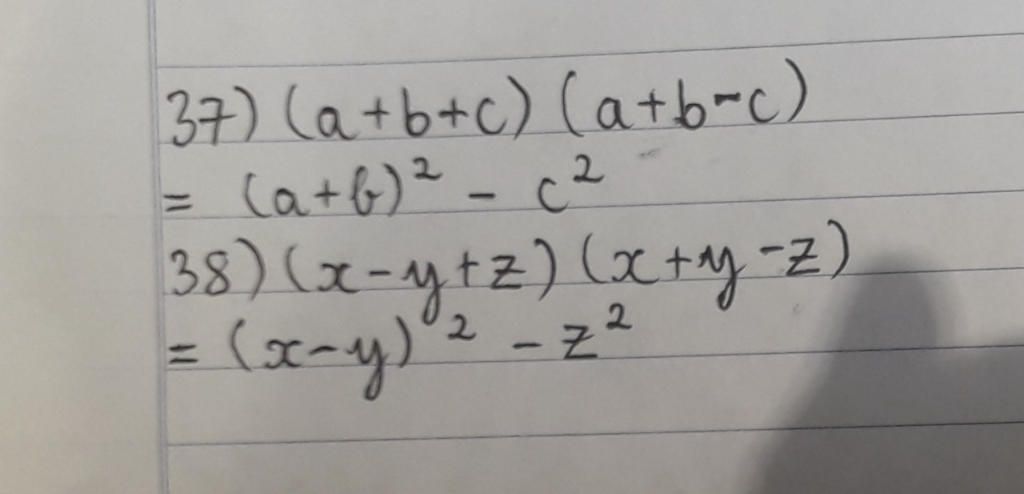 37) (a+b+c) (a+b-c)
= (a+b)² - c²
38) (x-y+z) (x+y-z)
= (x-y)² - z²